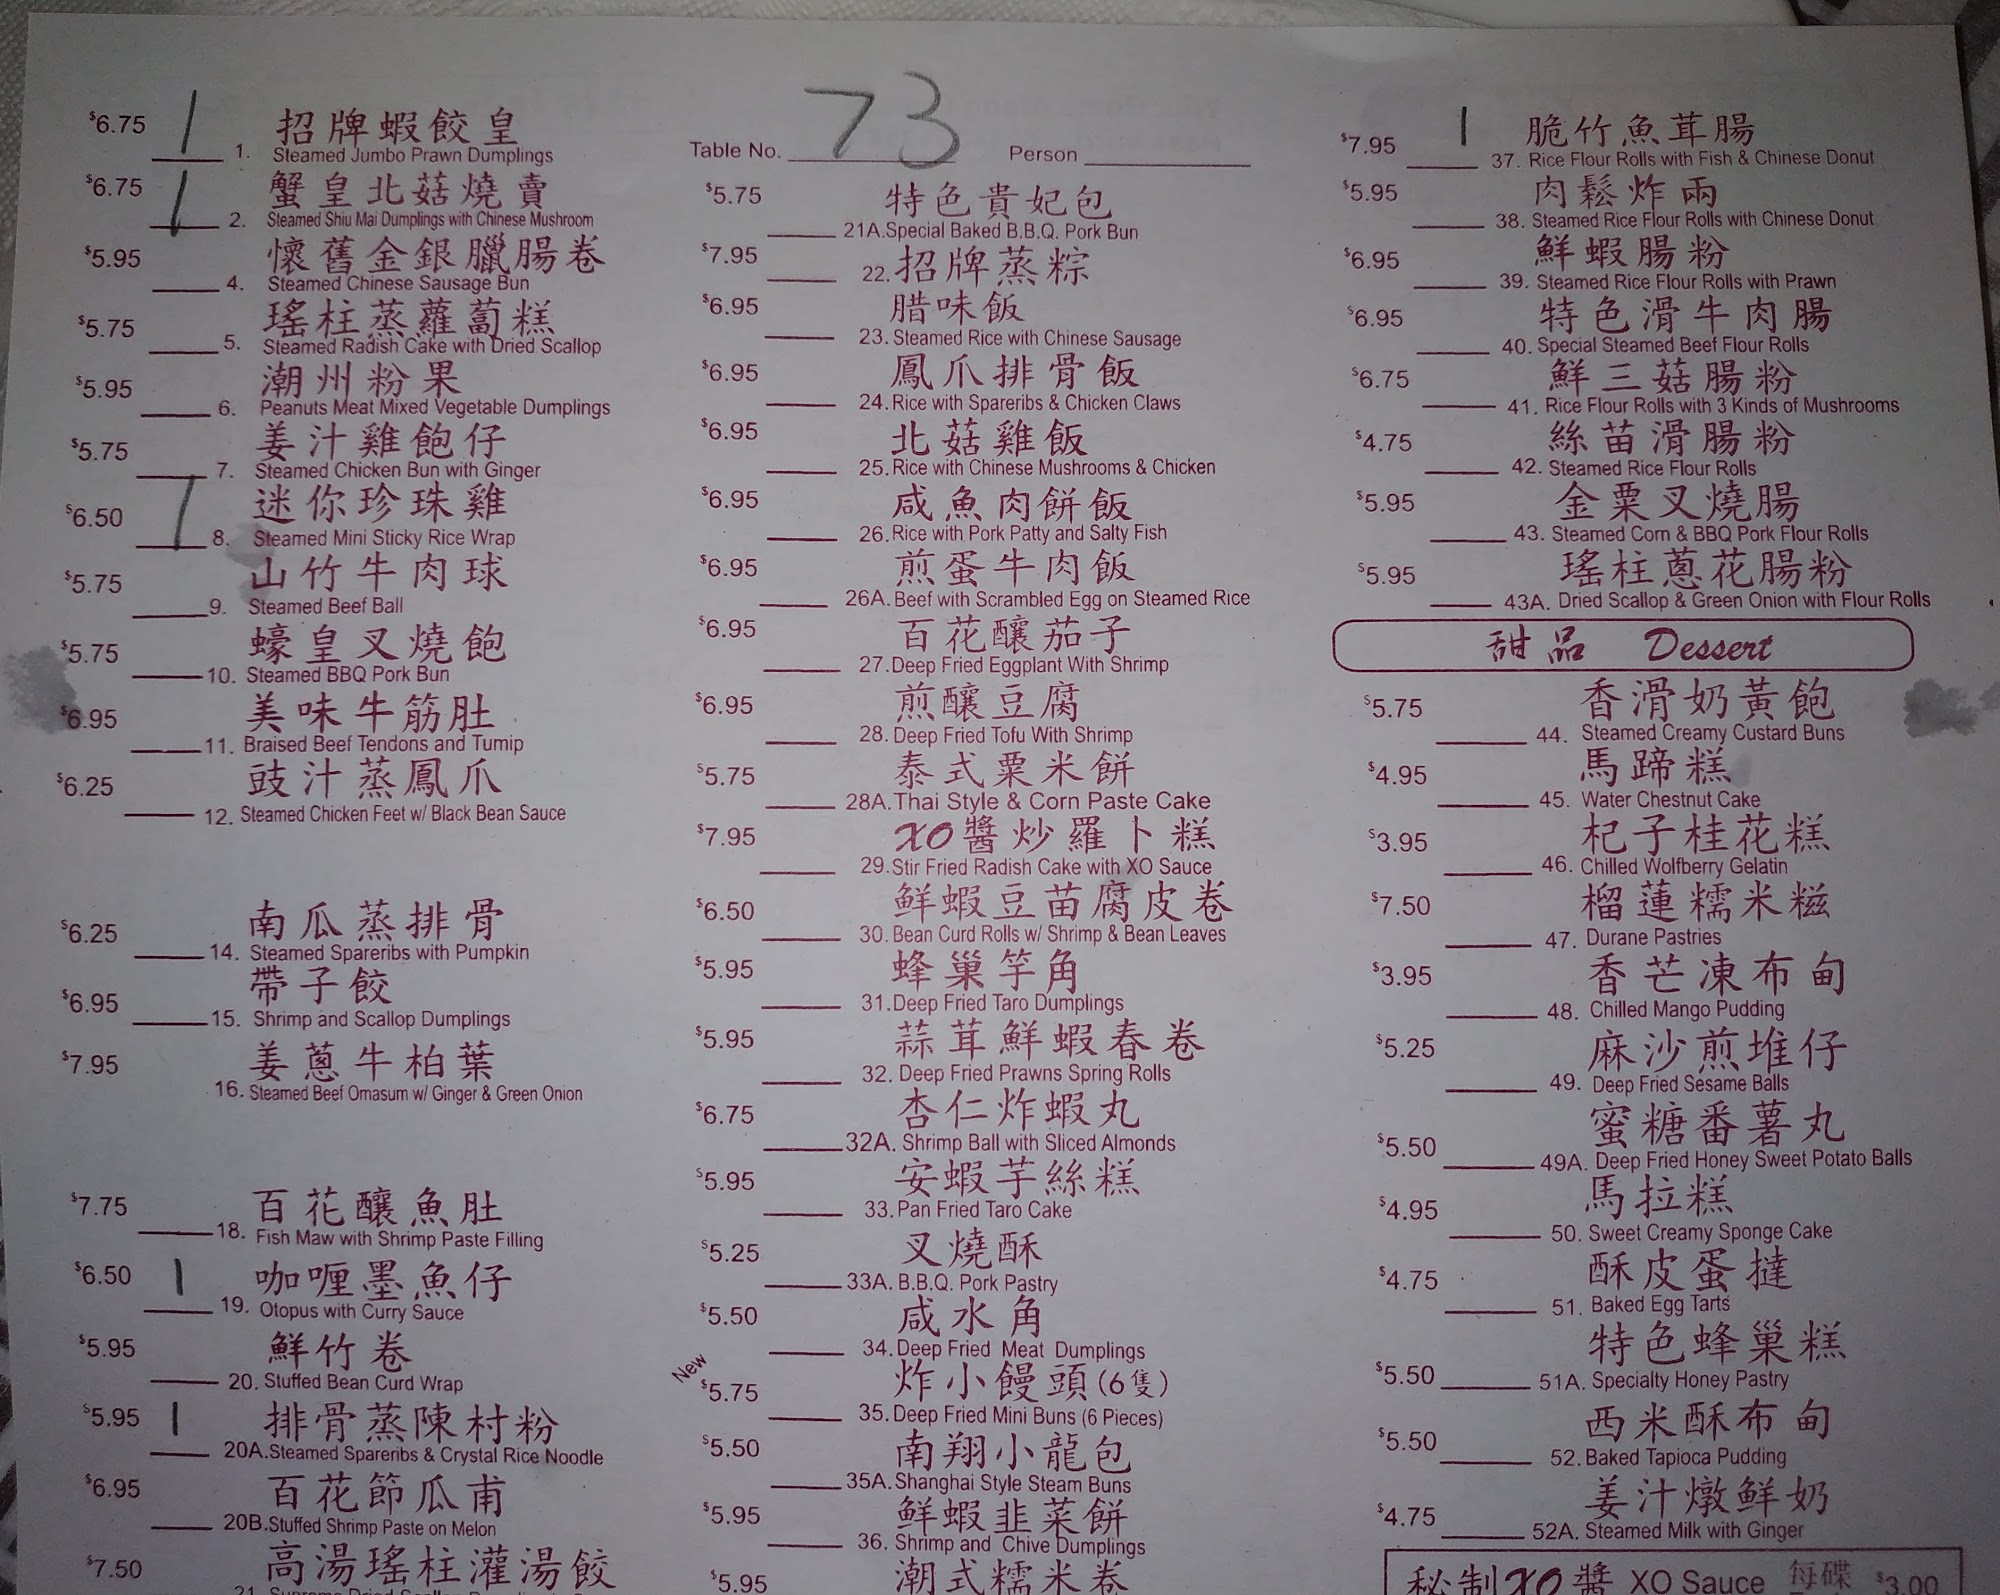 $6.75 1 招牌蝦餃皇
1. Steamed Jumbo Prawn Dumplings
$6.75 1 蟹皇北菇燒賣
2. Steamed Shiu Mai Dumplings with Chinese Mushroom
$5.95 懷舊金銀臘腸卷
4. Steamed Chinese Sausage Bun
$5.75 瑤柱蒸蘿蔔糕
5. Steamed Radish Cake with Dried Scallop
$5.95 潮州粉果
6. Peanuts Meat Mixed Vegetable Dumplings
$5.75 姜汁雞飽仔
7. Steamed Chicken Bun with Ginger
$6.50 1 迷你珍珠雞
8. Steamed Mini Sticky Rice Wrap
$5.75 山竹牛肉球
9. Steamed Beef Ball
$5.75 蠔皇叉燒飽
10. Steamed BBQ Pork Bun
$6.95 美味牛筋肚
11. Braised Beef Tendons and Turnip
$6.25 豉汁蒸鳳爪
12. Steamed Chicken Feet w/ Black Bean Sauce
$6.25 南瓜蒸排骨
14. Steamed Spareribs with Pumpkin
$6.95 帶子餃
15. Shrimp and Scallop Dumplings
$7.95 姜蔥牛柏葉
16. Steamed Beef Omasum w/ Ginger & Green Onion
$7.75 百花釀魚肚
18. Fish Maw with Shrimp Paste Filling
$6.50 1 咖喱墨魚仔
19. Otopus with Curry Sauce
$5.95 鮮竹卷
20. Stuffed Bean Curd Wrap
$5.95 1 排骨蒸陳村粉
20A. Steamed Spareribs & Crystal Rice Noodle
$6.95 百花節瓜甫
20B. Stuffed Shrimp Paste on Melon
$7.50 高湯瑤柱灌湯餃
Table No. 73 Person
$5.75 特色貴妃包
21A. Special Baked B.B.Q. Pork Bun
$7.95 22. 招牌蒸粽
$6.95 腊味飯
23. Steamed Rice with Chinese Sausage
$6.95 鳳爪排骨飯
24. Rice with Spareribs & Chicken Claws
$6.95 北菇雞飯
25. Rice with Chinese Mushrooms & Chicken
$6.95 咸魚肉餅飯
26. Rice with Pork Patty and Salty Fish
$6.95 煎蛋牛肉飯
26A. Beef with Scrambled Egg on Steamed Rice
$6.95 百花釀茄子
27. Deep Fried Eggplant With Shrimp
$6.95 煎釀豆腐
28. Deep Fried Tofu With Shrimp
$5.75 泰式粟米餅
28A. Thai Style & Corn Paste Cake
$7.95 XO醬炒羅卜糕
29. Stir Fried Radish Cake with XO Sauce
$6.50 鮮蝦豆苗腐皮卷
30. Bean Curd Rolls w/ Shrimp & Bean Leaves
$5.95 蜂巢芋角
31. Deep Fried Taro Dumplings
$5.95 蒜茸鮮蝦春卷
32. Deep Fried Prawns Spring Rolls
$6.75 杏仁炸蝦丸
32A. Shrimp Ball with Sliced Almonds
$5.95 安蝦芋絲糕
33. Pan Fried Taro Cake
$5.25 叉燒酥
33A. B.B.Q. Pork Pastry
$5.50 咸水角
34. Deep Fried Meat Dumplings
New $5.75 炸小饅頭(6隻)
35. Deep Fried Mini Buns (6 Pieces)
$5.50 南翔小龍包
35A. Shanghai Style Steam Buns
$5.95 鮮蝦韭菜餅
36. Shrimp and Chive Dumplings
$5.95 潮式糯米卷
$7.95 1 脆竹魚茸腸
37. Rice Flour Rolls with Fish & Chinese Donut
$5.95 肉鬆炸兩
38. Steamed Rice Flour Rolls with Chinese Donut
$6.95 鮮蝦腸粉
39. Steamed Rice Flour Rolls with Prawn
$6.95 特色滑牛肉腸
40. Special Steamed Beef Flour Rolls
$6.75 鮮三菇腸粉
41. Rice Flour Rolls with 3 Kinds of Mushrooms
$4.75 絲苗滑腸粉
42. Steamed Rice Flour Rolls
$5.95 金粟叉燒腸
43. Steamed Corn & BBQ Pork Flour Rolls
$5.95 瑤柱蔥花腸粉
43A. Dried Scallop & Green Onion with Flour Rolls
甜品 Dessert
$5.75 香滑奶黃飽
44. Steamed Creamy Custard Buns
$4.95 馬蹄糕
45. Water Chestnut Cake
$3.95 杞子桂花糕
46. Chilled Wolfberry Gelatin
$7.50 榴蓮糯米糍
47. Durane Pastries
$3.95 香芒凍布甸
48. Chilled Mango Pudding
$5.25 麻沙煎堆仔
49. Deep Fried Sesame Balls
$5.50 蜜糖番薯丸
49A. Deep Fried Honey Sweet Potato Balls
$4.95 馬拉糕
50. Sweet Creamy Sponge Cake
$4.75 酥皮蛋撻
51. Baked Egg Tarts
$5.50 特色蜂巢糕
51A. Specialty Honey Pastry
$5.50 西米酥布甸
52. Baked Tapioca Pudding
$4.75 姜汁燉鮮奶
52A. Steamed Milk with Ginger
秘制XO醬 XO Sauce 每碟 $3.00